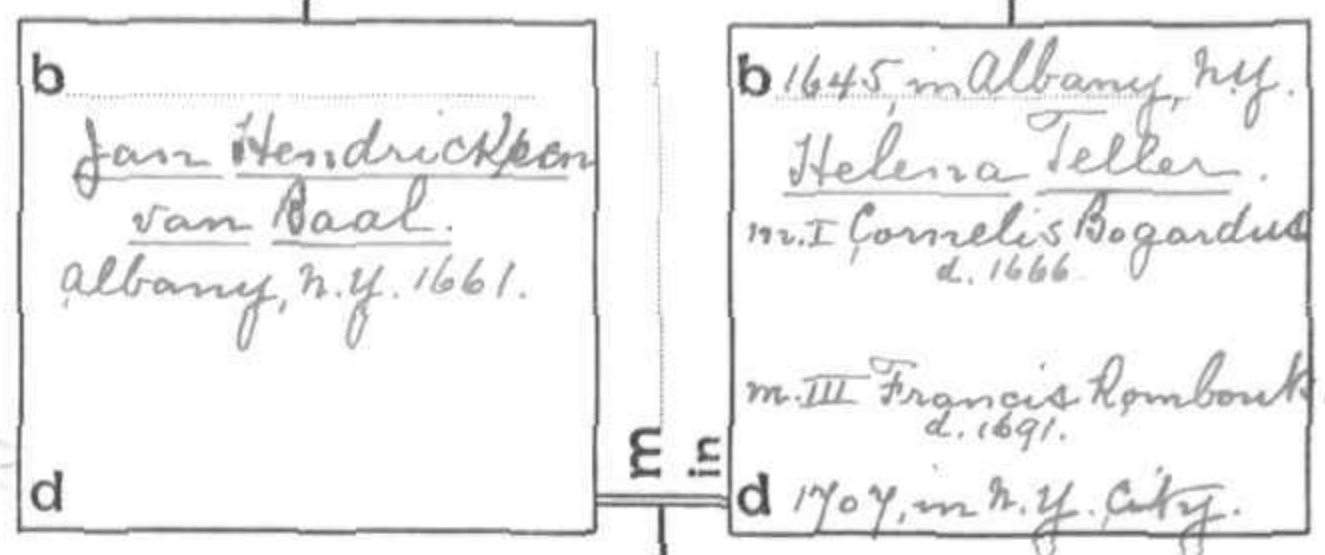 b
Jan Hendricksen
van Baal.
Albany, N.Y. 1661.
d
m
in
b 1645, in Albany, N.Y.
Helena Teller.
m. I Cornelis Bogardus
d. 1666
m. III Francis Rombouts
d. 1691.
d 1707, in N.Y. City.